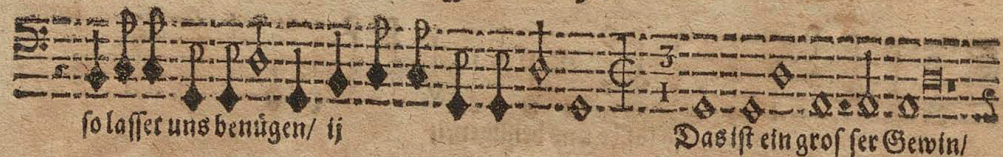 so lasset uns benügen/ ij Das ist ein gros ser Gewin/